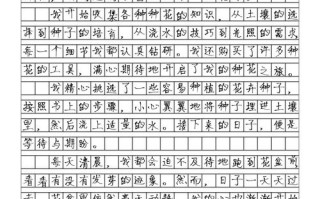 我开始收集各种种花的知识，从土壤的选
择到种子的培育，从浇水的技巧到光照的需求，
每一个细节我都认真钻研。我还购买了许多种
花的工具，满心期待地开启了我的种花之旅。
我精心挑选了一些容易种植的花卉种子，
按照书上的步骤，小心翼翼地将种子埋进土壤
里，然后浇上适量的水。接下来的日子，便是
等待与期盼。
每天清晨，我都会迫不及待地跑到花盆前
看看有没有发芽的迹象。然而，日子一天天过